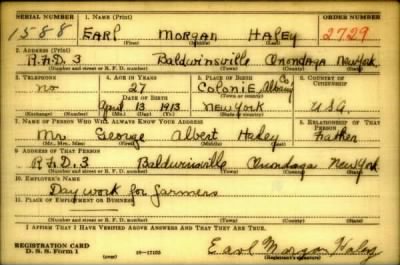 SERIAL NUMBER 1. NAME (Print) ORDER NUMBER
1588 EARL MORGAN HALEY 2729
(First) (Middle) (Last)
2. ADDRESS (Print)
R.F.D. 3 Baldwinsville Onondaga New York
(Number and street or R. F. D. number) (Town) (County) (State)
3. TELEPHONE 4. AGE IN YEARS 5. PLACE OF BIRTH 6. COUNTRY OF CITIZENSHIP
no 27 Colonie, Albany Co
DATE OF BIRTH
April 13 1913 New York U.S.A.
(Exchange) (Number) (Mo.) (Day) (Yr.) (State or country)
7. NAME OF PERSON WHO WILL ALWAYS KNOW YOUR ADDRESS 8. RELATIONSHIP OF THAT PERSON
Mr. George Albert Haley Father
(Mr., Mrs., Miss) (First) (Middle) (Last)
9. ADDRESS OF THAT PERSON
R.F.D. 3 Baldwinsville Onondaga New York
(Number and street or R. F. D. number) (Town) (County) (State)
10. EMPLOYER'S NAME
Day work for farmers
11. PLACE OF EMPLOYMENT OR BUSINESS
(Number and street or R. F. D. number) (Town) (County) (State)
I AFFIRM THAT I HAVE VERIFIED ABOVE ANSWERS AND THAT THEY ARE TRUE.
REGISTRATION CARD
D. S. S. Form 1 16-17105 Earl Morgan Haley
(Registrant's signature)